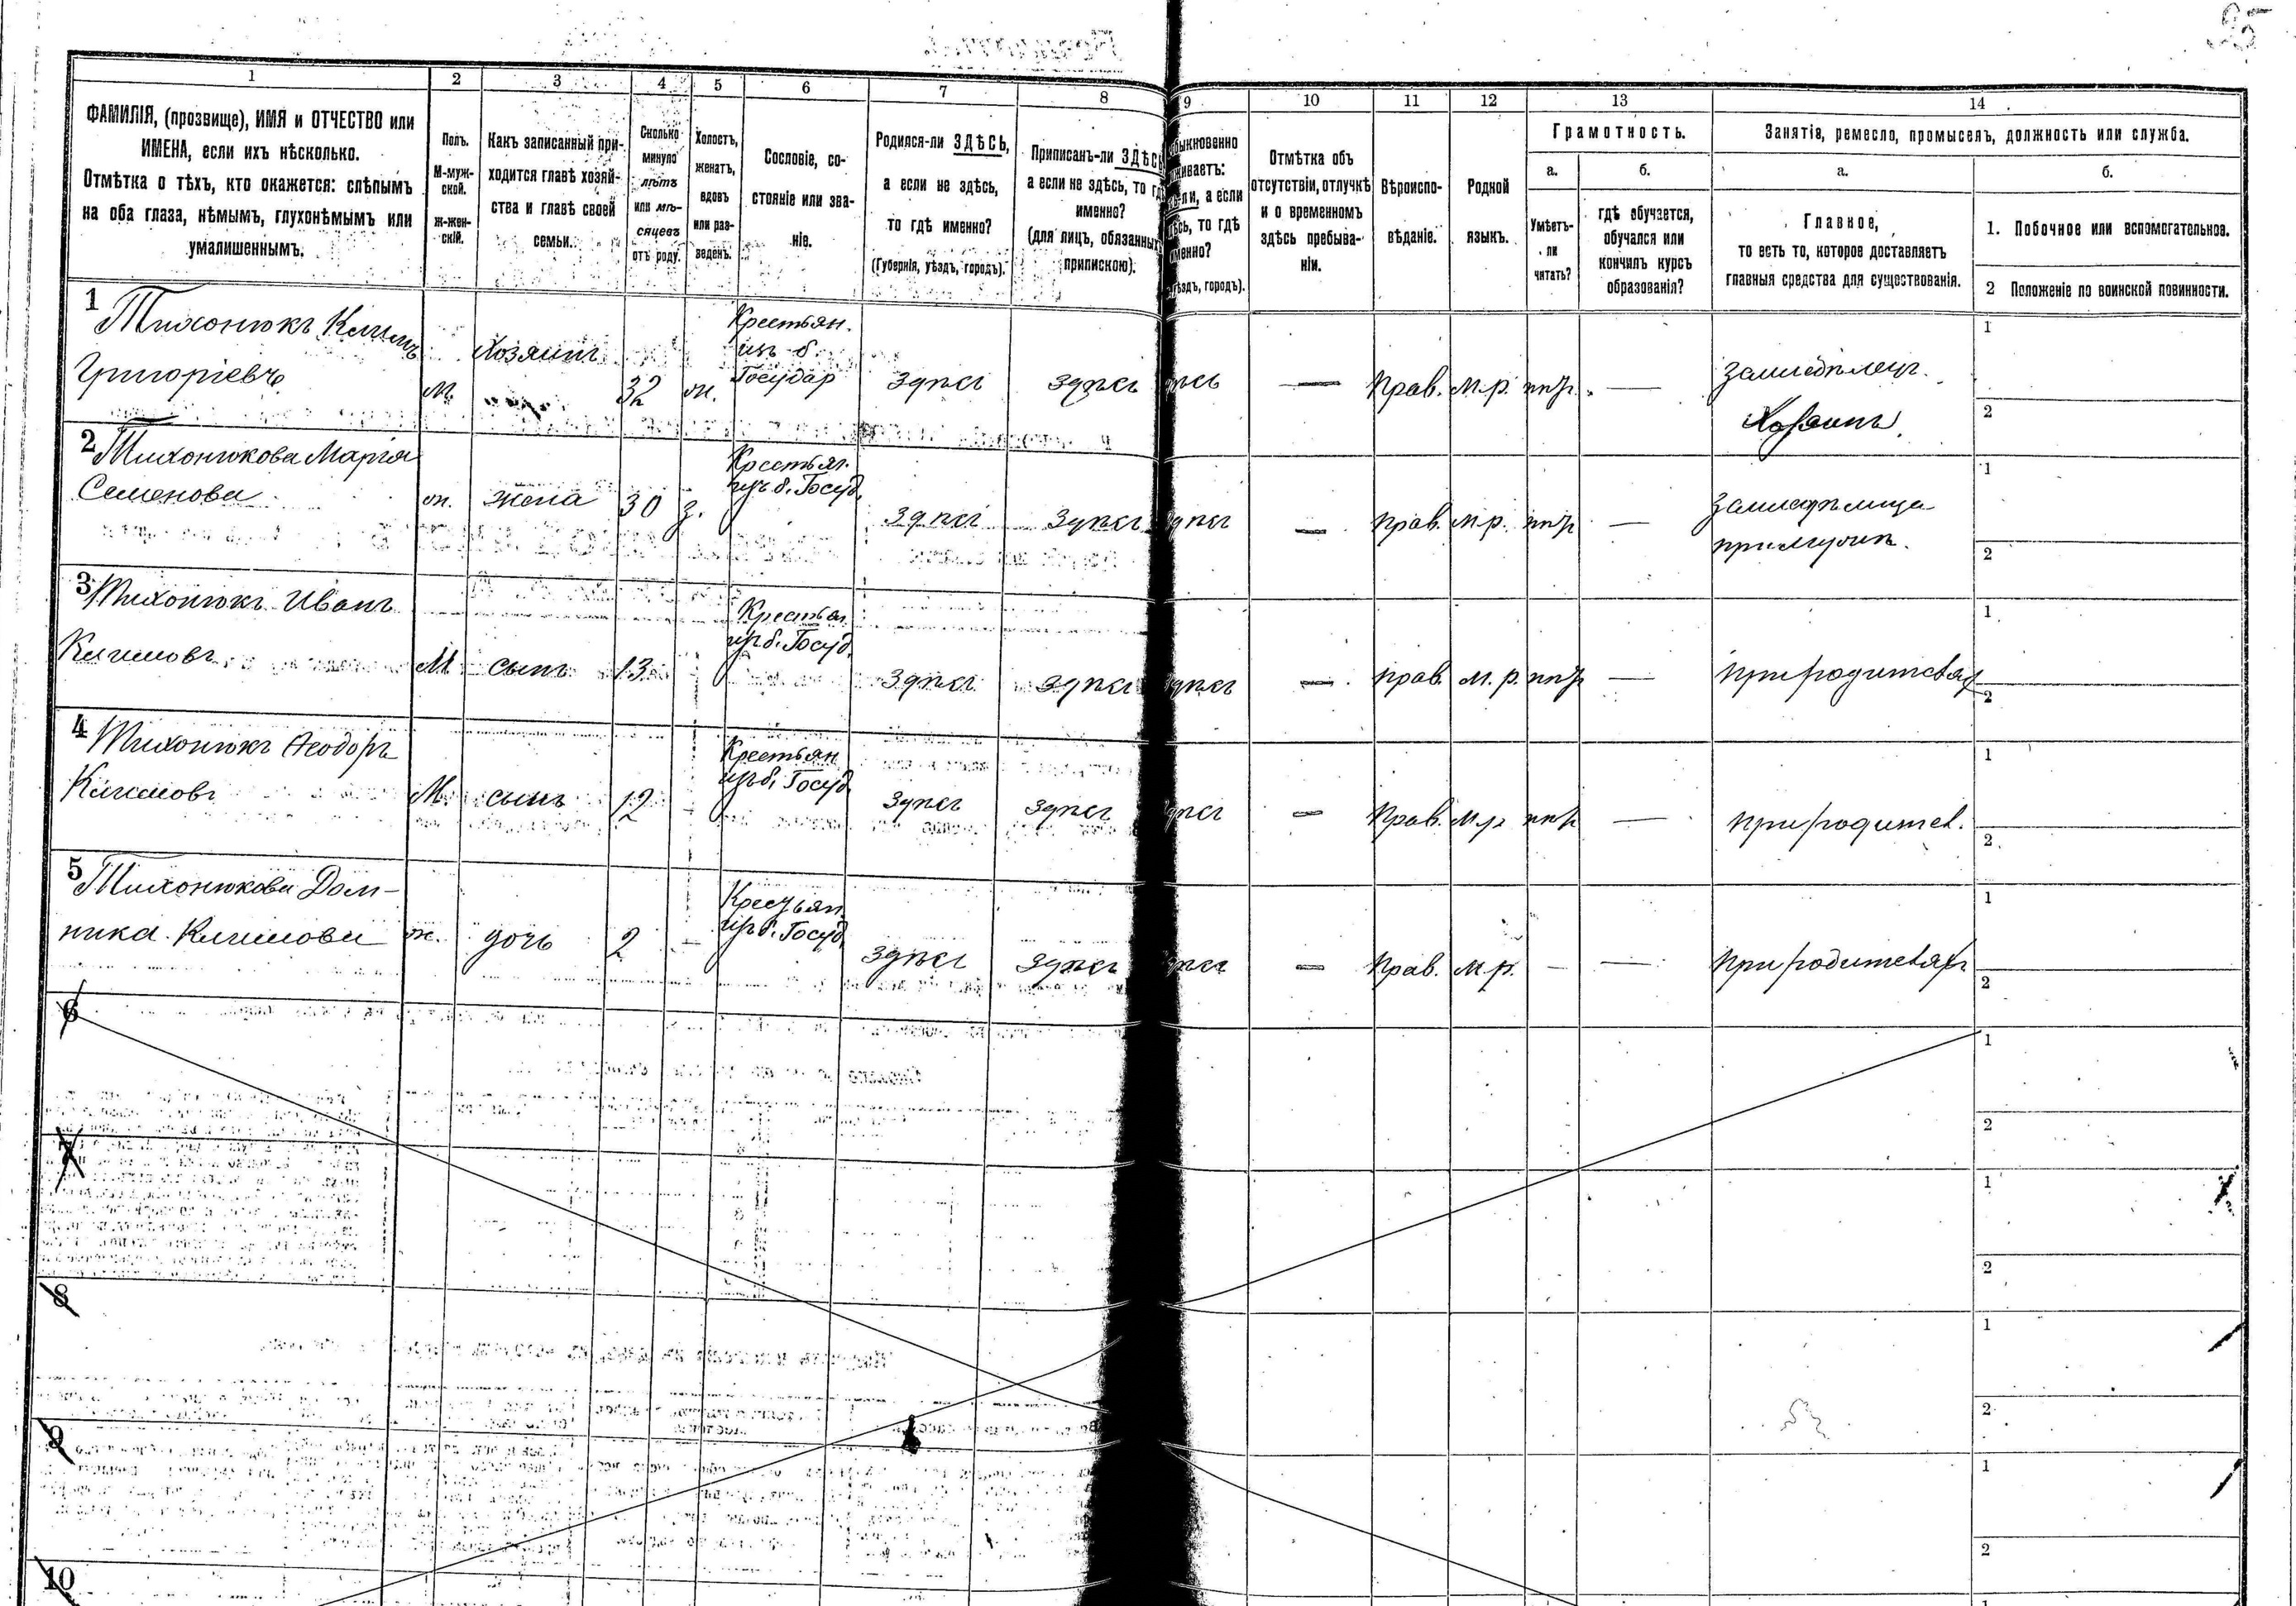 25
1 2 3 4 5 6 7 8 9 10 11 12 13 14
ФАМИЛІЯ, (прозвище), ИМЯ и ОТЧЕСТВО или
ИМЕНА, если ихъ нѣсколько.
Отмѣтка о тѣхъ, кто окажется: слѣпымъ
на оба глаза, нѣмымъ, глухонѣмымъ или
умалишеннымъ.
Полъ.
М-муж-
ской.
Ж-жен-
скій.
Какъ записанный при-
ходится главѣ хозяй-
ства и главѣ своей
семьи.
Сколько
минуло
лѣтъ
или мѣ-
сяцевъ
отъ роду.
Холостъ,
женатъ,
вдовъ
или раз-
веденъ.
Сословіе, со-
стояніе или зва-
ніе.
Родился-ли ЗДѢСЬ,
а если не здѣсь,
то гдѣ именно?
(Губернія, уѣздъ, городъ).
Приписанъ-ли ЗДѢСЬ
а если не здѣсь, то гдѣ
именно?
(для лицъ, обязанныхъ
припискою).
быкновенно
живаетъ:
ли, а если
сь, то гдѣ
менно?
ѣздъ, городъ).
Отмѣтка объ
отсутствіи, отлучкѣ
и о временномъ
здѣсь пребыва-
ніи.
Вѣроиспо-
вѣданіе.
Родной
языкъ.
Грамотность.
а.
Умѣетъ-
ли
читать?
б.
гдѣ обучается,
обучался или
кончилъ курсъ
образованія?
Занятіе, ремесло, промыселъ, должность или служба.
а.
Главное,
то есть то, которое доставляетъ
главныя средства для существованія.
б.
1. Побочное или вспомогательное.
2 Положеніе по воинской повинности.
1 Тихонюкъ Климъ
Григоріевъ
м. Хозяинъ 32 ж.
Крестьян.
изъ б.
Государ
здѣсь здѣсь ѣсь — Прав. м.р. нѣтъ —
Земледѣлец.
Хозяинъ
1
2
2 Тихонюкова Марія
Семенова
ж. жена 30 з.
Крестьян.
изъ б. Госуд.
здѣсь здѣсь здѣсь — прав. м.р. нѣтъ —
Земледѣлица
при мужѣ.
1
2
3 Тихонюкъ Иванъ
Климовъ
М сынъ 13
Крестьян
изъ б. Госуд.
здѣсь здѣсь здѣсь — прав. м.р. нѣтъ —
при родителях
1
2
4 Тихонюкъ Ѳеодоръ
Климовъ
М. сынъ 12 -
Крестьян
изъ б. Госуд
здѣсь здѣсь здѣсь — Прав. м.р нѣтъ —
при родител.
1
2
5 Тихонюкова Дом-
ника Климова
ж. дочь 2 —
Крестьян.
изъ б. Госуд
здѣсь здѣсь здѣсь — Прав. м.р. — —
при родителяхъ
1
2
6
1
2
7
1
2
8
1
2
9
1
2
10
1